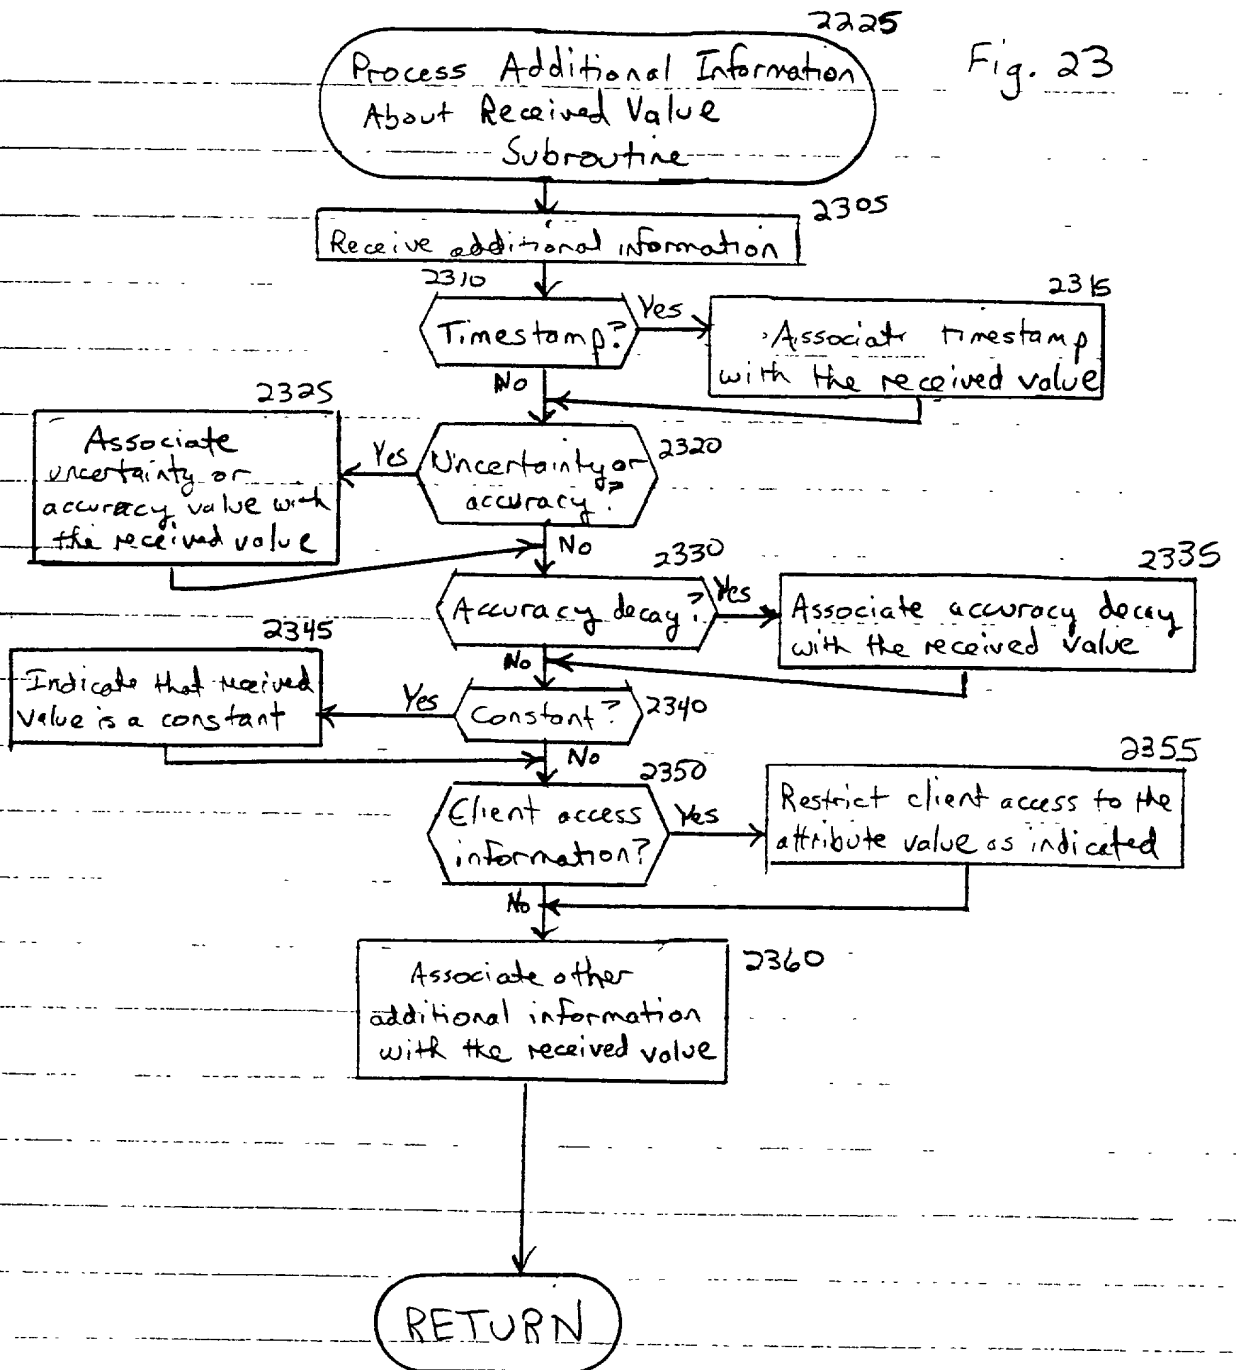 2225
Fig. 23
Process Additional Information
About Received Value
Subroutine
2305
Receive additional information
2310
Timestamp?
Yes
2315
Associate timestamp
with the received value
No
2325
Associate
uncertainty or
accuracy value with
the received value
Yes
Uncertainty or
accuracy?
2320
No
2330
Accuracy decay?
Yes
2335
Associate accuracy decay
with the received value
No
2345
Indicate that received
value is a constant
Yes
Constant?
2340
No
2350
Client access
information?
Yes
2355
Restrict client access to the
attribute value as indicated
No
2360
Associate other
additional information
with the received value
RETURN